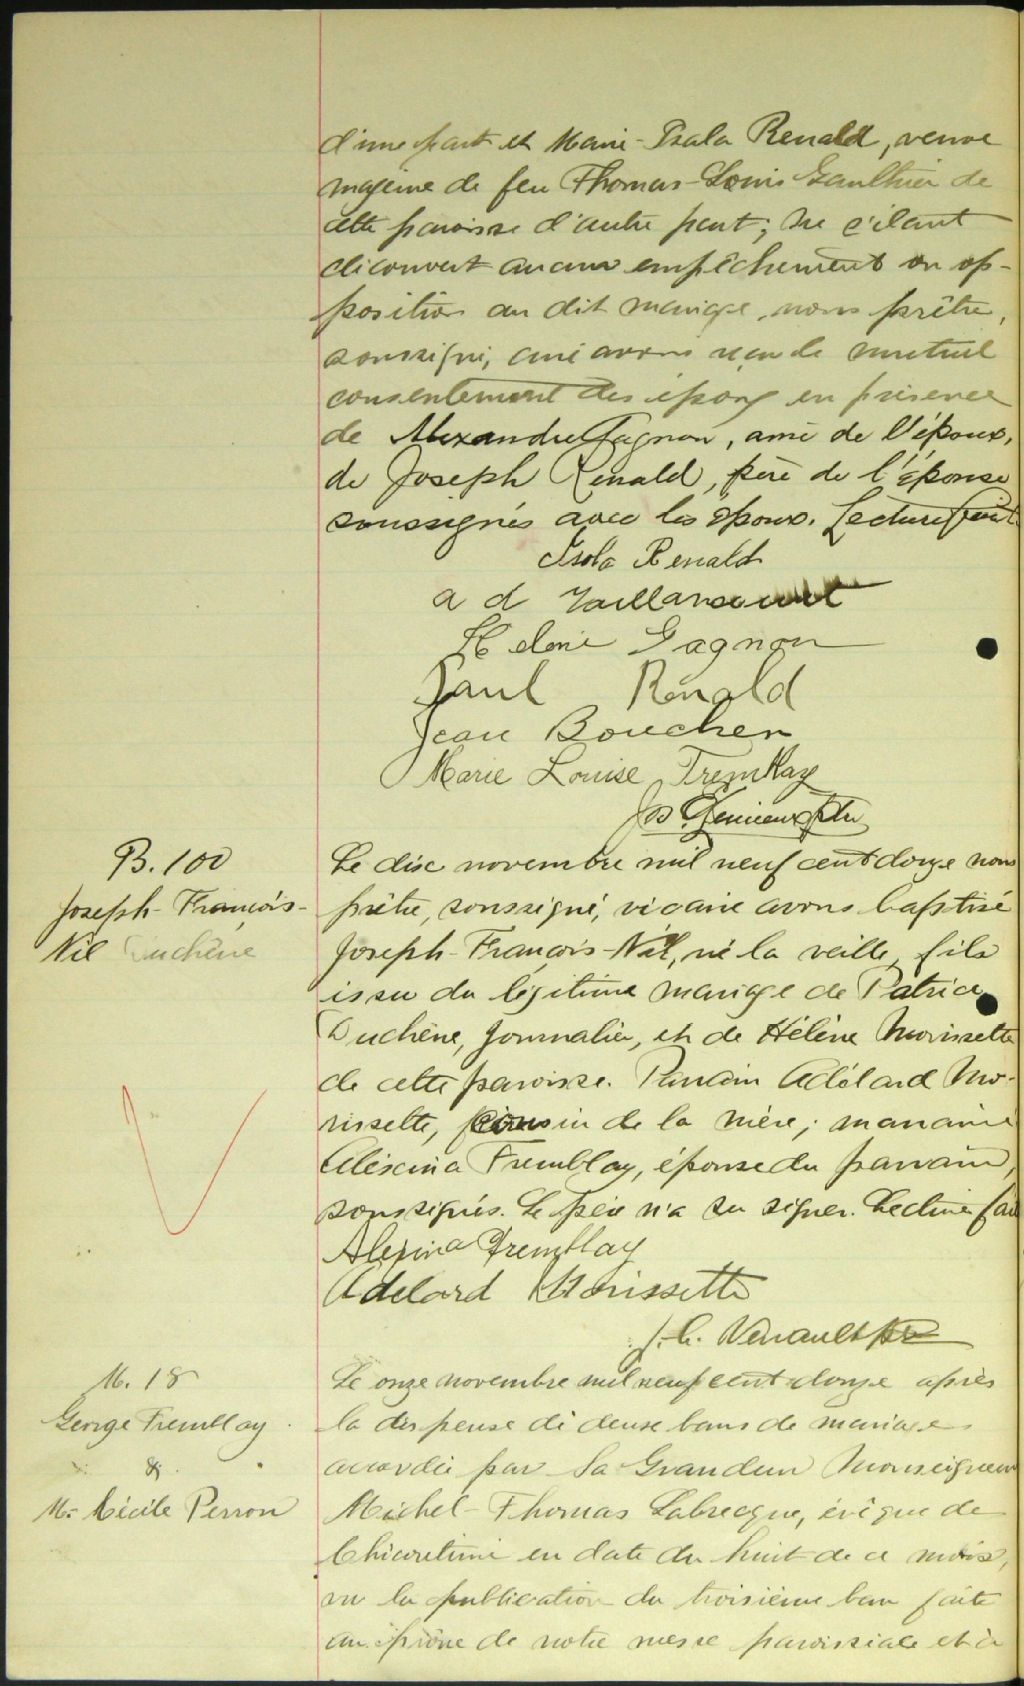 d'une part et Marie-Isala Renald, veuve
majeure de feu Thomas-Louis Gaulthier de
cette paroisse d'autre part; ne s'étant
découvert aucun empêchement ou op-
position au dit mariage, nous prêtre,
soussigné, curé avons reçu le mutuel
consentement des époux en présence
de Alexandre Gagnon, ami de l'époux,
de Joseph Renald, père de l'épouse
soussignés avec les époux. Lecture faite
Isola Renald
a d Vaillancourt
Gagnon
Paul Renald
Jean Boucher
Marie Louise Tremblay
Jos
B. 100
Joseph-François-
Nil Duchêne
Le dix novembre mil neuf cent douze nous
prêtre, soussigné, vicaire avons baptisé
Joseph-François-Nil, né la veille, fils
issu du légitime mariage de Patrice
Duchêne, journalier, et de Hélène Morissette
de cette paroisse. Parrain Adélard Mo-
rissette, cousin de la mère; marraine
Aléxina Tremblay, épouse du parrain,
soussignés. Le père n'a su signer. Lecture faite
Alexina Tremblay
Adelard Morissette
M. 18
George Tremblay
&
M. Cécile Perron
Le onze novembre mil neuf cent douze après
la dispense de deux bans de mariage
accordée par Sa Grandeur Monseigneur
Michel-Thomas Labrecque, évêque de
Chicoutimi en date du huit de ce mois,
vu la publication du troisième ban faite
au prône de notre messe paroissiale et à